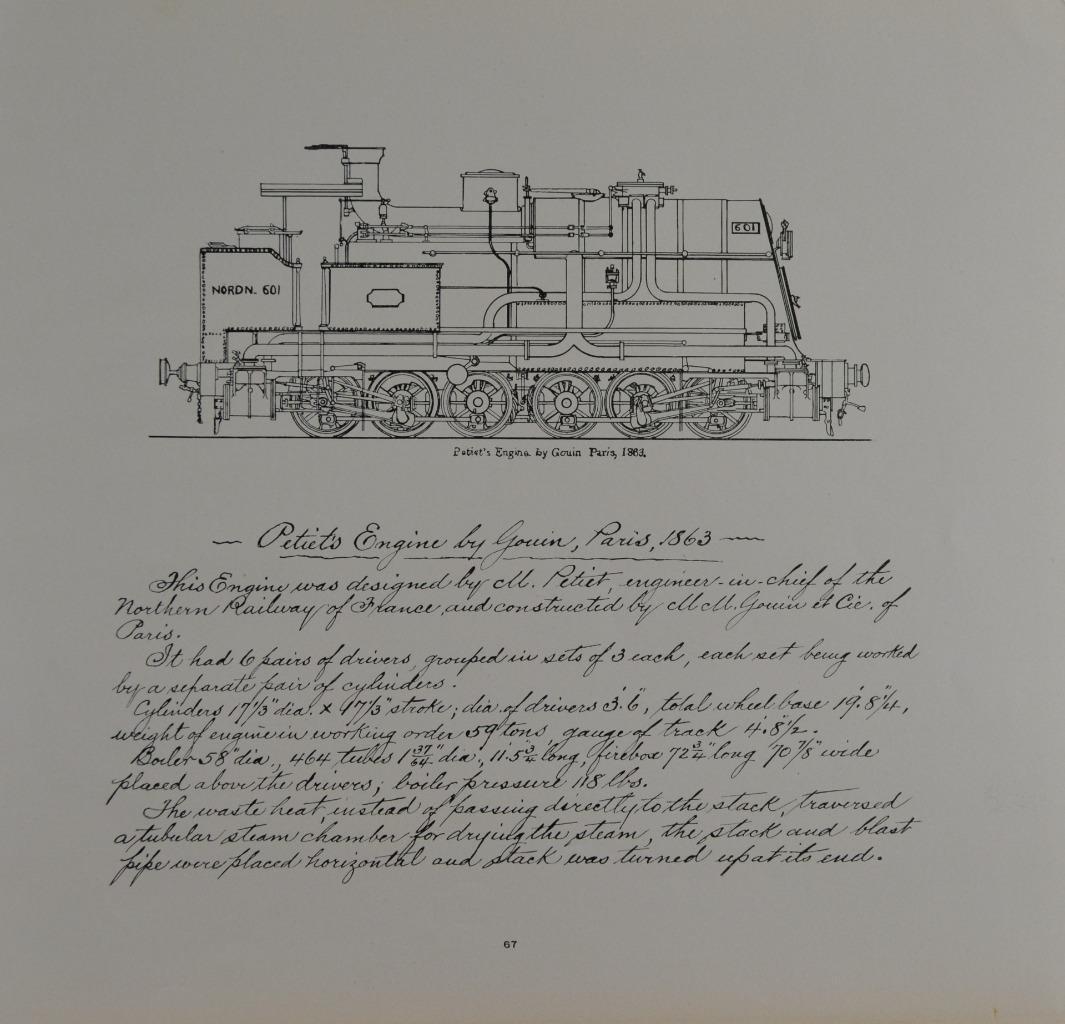 601
NORDN. 601
Petiet's Engine by Gouin Paris, 1863.
— Petiet's Engine by Gouin, Paris, 1863 —
This Engine was designed by M. Petiet, engineer-in-chief of the
Northern Railway of France, and constructed by M M. Gouin et Cie. of
Paris.
It had 6 pairs of drivers, grouped in sets of 3 each, each set being worked
by a separate pair of cylinders.
Cylinders 17⅓" dia. x 17⅓" stroke; dia. of drivers 3'.6", total wheel base 19'.8¼,
weight of engine in working order 59 tons, gauge of track 4'.8½.
Boiler 58" dia., 464 tubes 1 37/64" dia., 11'.5¾" long, firebox 72¾" long 70⅞" wide
placed above the drivers; boiler pressure 118 lbs.
The waste heat instead of passing directly to the stack, traversed
a tubular steam chamber for drying the steam, the stack and blast
pipe were placed horizontal and stack was turned up at its end.
67